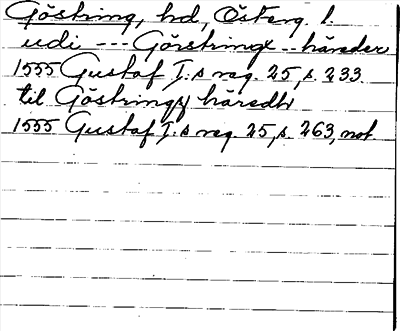 Göstring, hd, Österg. l.
udi --- Görstringx -- häreder
1555 Gustaf I:s reg. 25, s. 233.
til Göstrings häredh
1555 Gustaf I:s reg. 25, s. 263, not